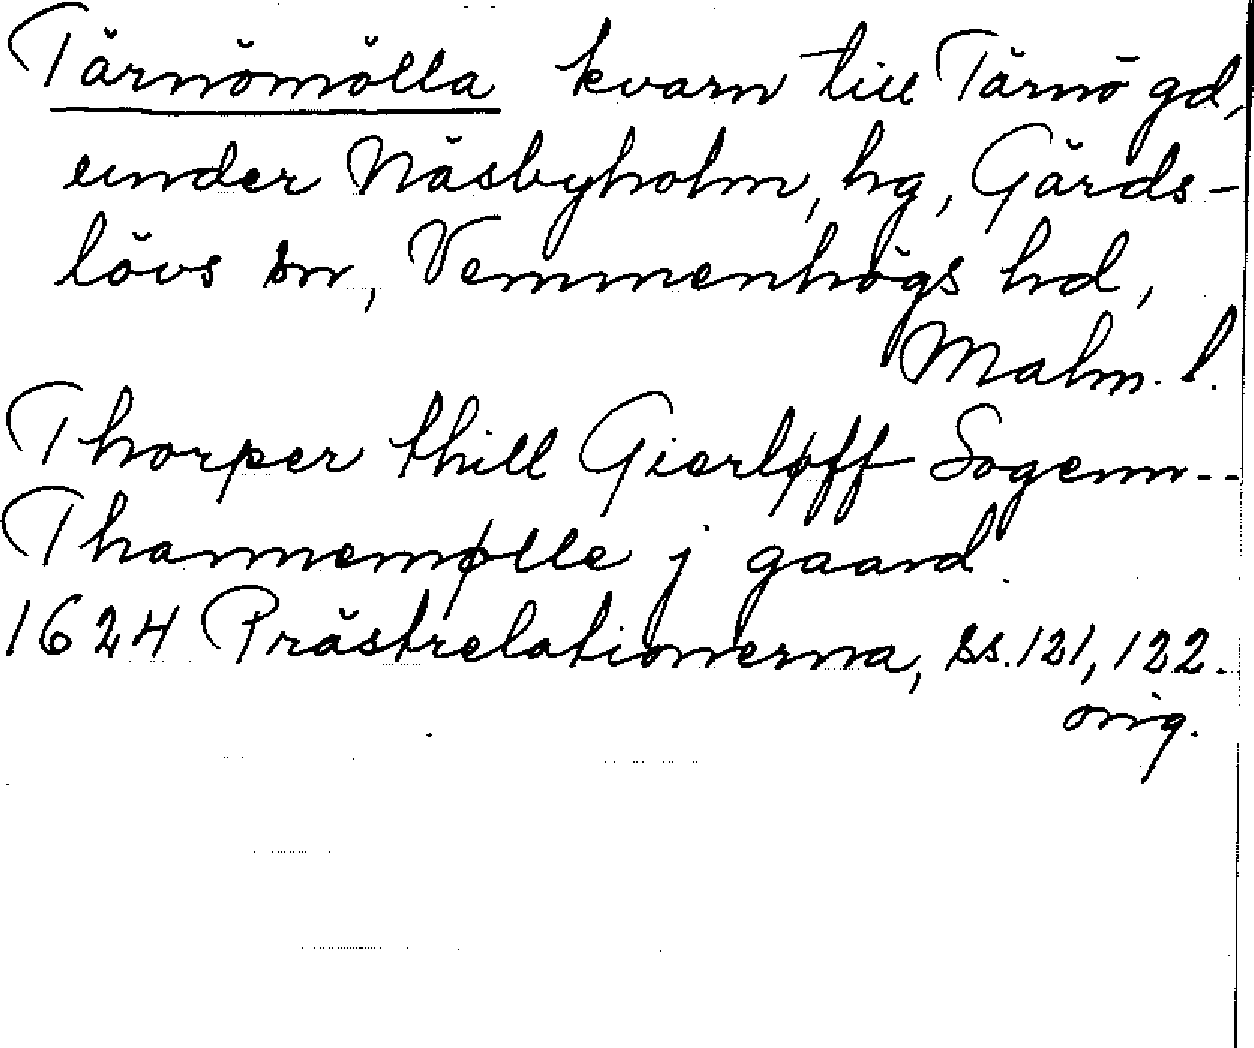 Tärnömölla kvarn till Tärnö gd,
under Näsbyholm, hg, Gärds-
lövs sn, Vemmenhögs hd,
Malm. l.
Thorper thill Gierløff Sogenn--
Thannemølle j gaard.
1624 Prästrelationerna, ss. 121, 122.
orig.